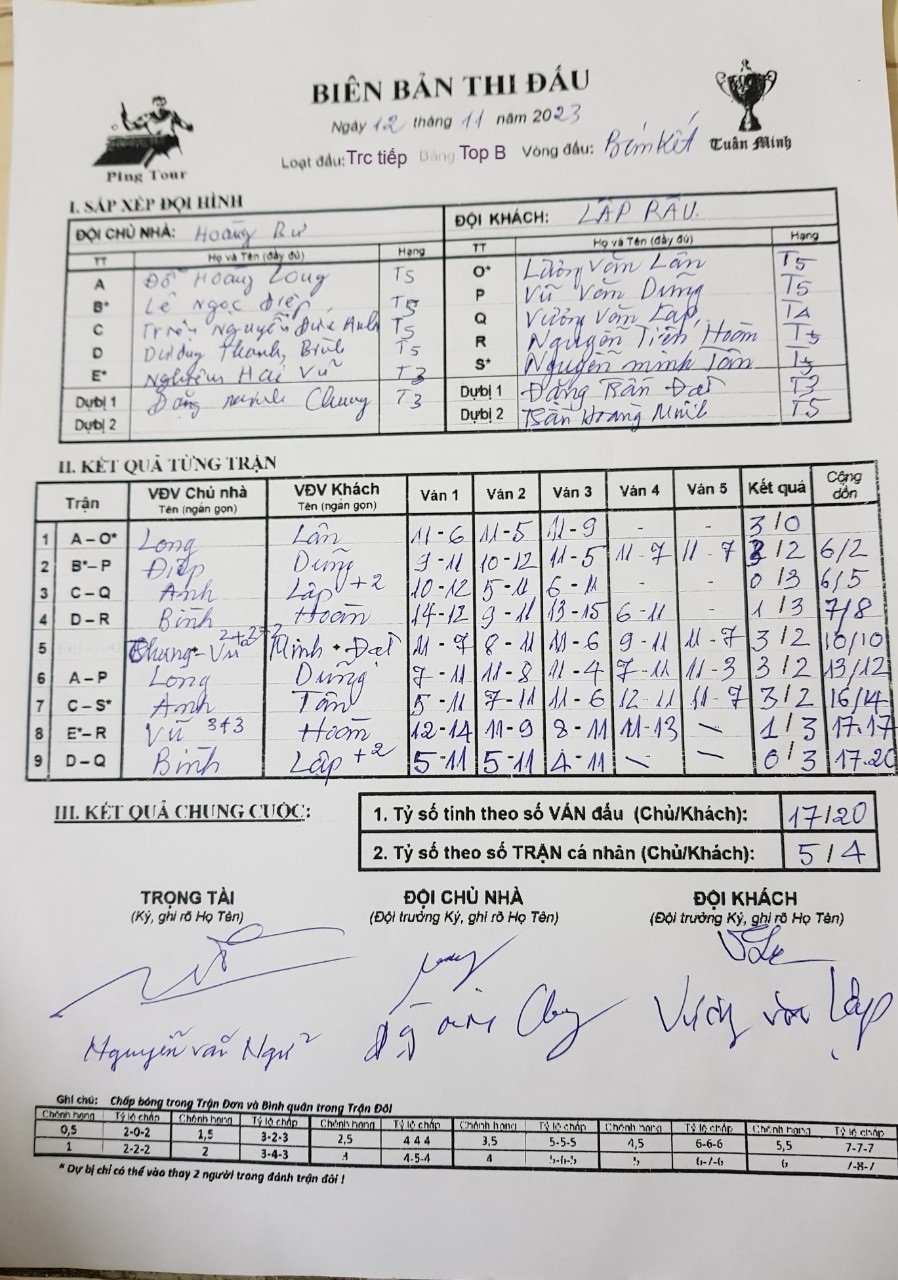 BIÊN BẢN THI ĐẤU
Ngày 12 tháng 11 năm 2023
Loạt đấu: Trc tiếp Bảng Top B Vòng đấu: Bán Kết
Ping Tour
Tuấn Minh
I. SẮP XẾP ĐỘI HÌNH
ĐỘI CHỦ NHÀ: Hoàng ĐỘI KHÁCH: LẬP RÂU.
TT Họ và Tên (đầy đủ) Hạng TT Họ và Tên (đầy đủ) Hạng
A Đỗ Hoàng Long T5 O* Lương Văn Lân T5
B* Lê Ngọc Điệp T5 P Vũ Văn Dũng T5
C Trần Nguyễn Đức Anh T5 Q Vương Văn Lập T4
D Dương Thanh Bình T5 R Nguyễn Tiến Hoàn T5
E* Nghiêm Hải Vũ T3 S* Nguyễn Minh Tân T5
Dự bị 1 Đặng Minh Chung T3 Dự bị 1 Đặng Trần Đạt T3
Dự bị 2 Dự bị 2 Trần Hoàng Minh T5
II. KẾT QUẢ TỪNG TRẬN
Trận VĐV Chủ nhà Tên (ngắn gọn) VĐV Khách Tên (ngắn gọn) Ván 1 Ván 2 Ván 3 Ván 4 Ván 5 Kết quả Cộng dồn
1 A – O* Long Lân 11 - 6 11 - 5 11 - 9 - - 3/0
2 B* – P Điệp Dũng 9 - 11 10 - 12 11 - 5 11 - 7 11 - 7 3/2 6/2
3 C – Q Anh Lập +2 10 - 12 5 - 11 6 - 11 - - 0/3 6/5
4 D – R Bình Hoàn 14 - 12 9 - 11 13 - 15 6 - 11 - 1/3 7/8
5 Chung - Vũ 2+2+2 Minh + Đạt 11 - 7 8 - 11 11 - 6 9 - 11 11 - 7 3/2 10/10
6 A – P Long Dũng 7 - 11 11 - 8 11 - 4 7 - 11 11 - 3 3/2 13/12
7 C – S* Anh Tân 5 - 11 7 - 11 11 - 6 12 - 11 11 - 7 3/2 16/14
8 E* – R Vũ 343 Hoàn 12 - 14 11 - 9 8 - 11 11 - 13 - 1/3 17.17
9 D – Q Bình Lập +2 5 - 11 5 - 11 4 - 11 - - 0/3 17.20
III. KẾT QUẢ CHUNG CUỘC:
1. Tỷ số tính theo số VÁN đấu (Chủ/Khách): 17/20
2. Tỷ số theo số TRẬN cá nhân (Chủ/Khách): 5/4
TRỌNG TÀI ĐỘI CHỦ NHÀ ĐỘI KHÁCH
(Ký, ghi rõ Họ Tên) (Đội trưởng Ký, ghi rõ Họ Tên) (Đội trưởng Ký, ghi rõ Họ Tên)
Nguyễn Văn Vương Văn Lập
Ghi chú: Chấp bóng trong Trận Đơn và Bình quân trong Trận Đôi
Chênh hạng Tỷ lệ chấp Chênh hạng Tỷ lệ chấp Chênh hạng Tỷ lệ chấp Chênh hạng Tỷ lệ chấp Chênh hạng Tỷ lệ chấp Chênh hạng Tỷ lệ chấp
0,5 2-0-2 1,5 3-2-3 2,5 4 4 4 3,5 5-5-5 4,5 6-6-6 5,5 7-7-7
1 2-2-2 2 3-4-3 4-5-4 4 5-6-5 5 6-7-6 6 7-8-7
* Dự bị chỉ có thể vào thay 2 người trong đánh trận đôi !